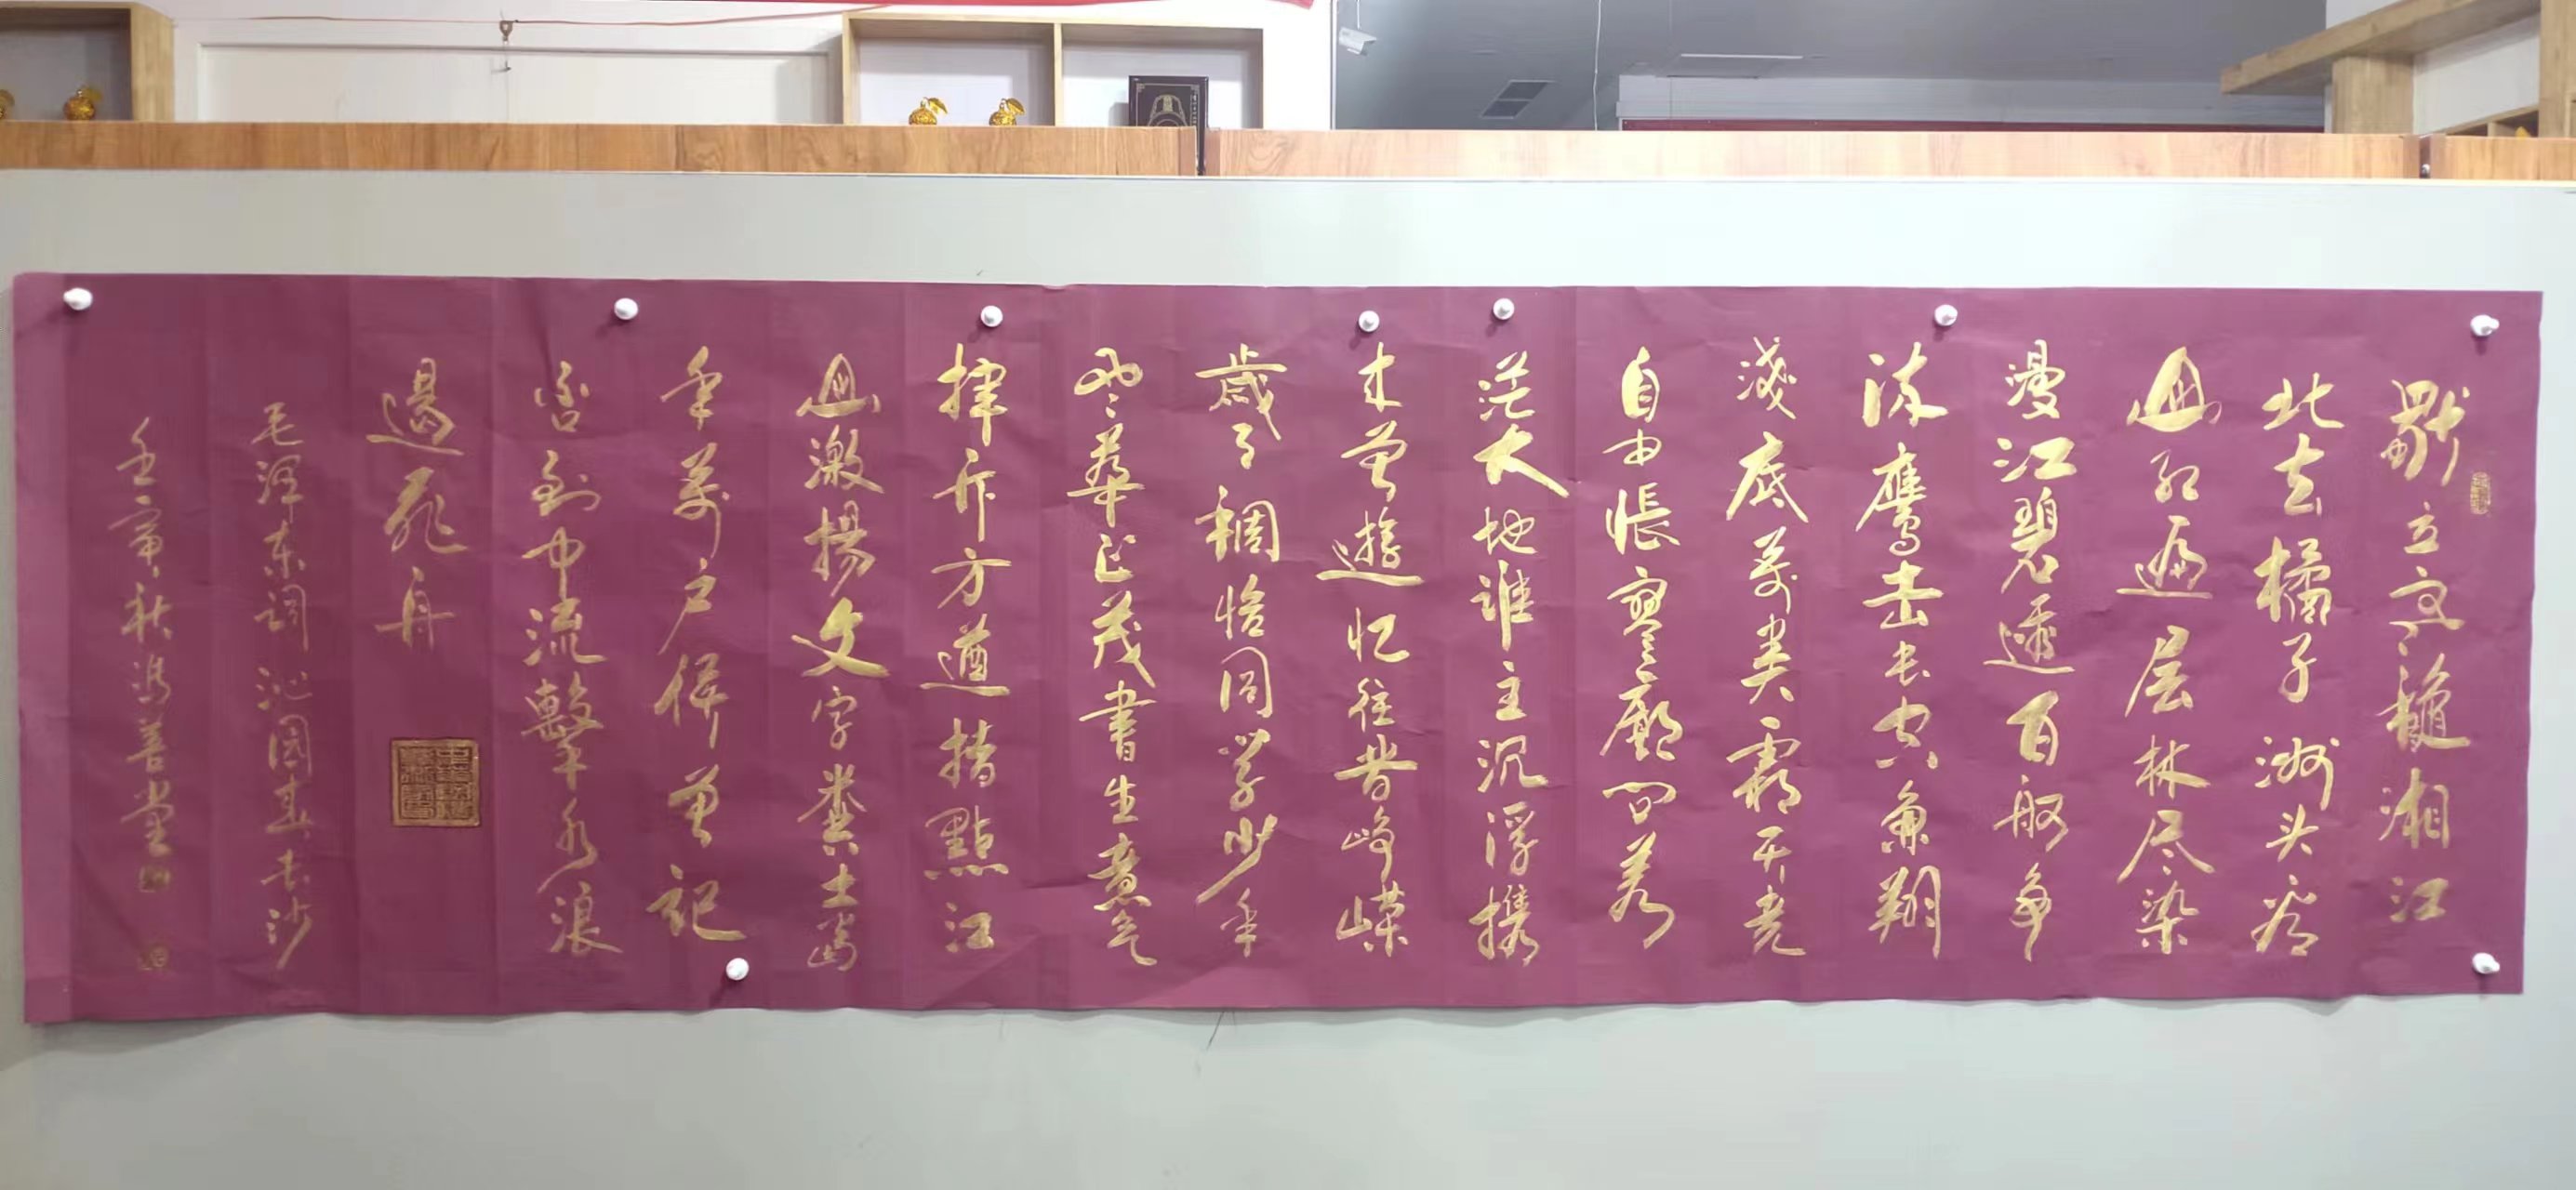 獨立寒穐湘江
北去橘子洲头看
山红遍层林尽染
漫江碧透百舸争
流鹰击长空鱼翔
浅底萬类霜天竞
自由悵寥廓问苍
茫大地谁主沉浮携
来曾遊忆往昔峥嵘
歲月稠恰同学少年
风華正茂書生意气
揮斥方遒指點江
山激揚文字粪土當
年萬户侯曾记
否到中流擊水浪
遏飛舟
毛泽东词沁园春长沙
壬寅秋馮善堂